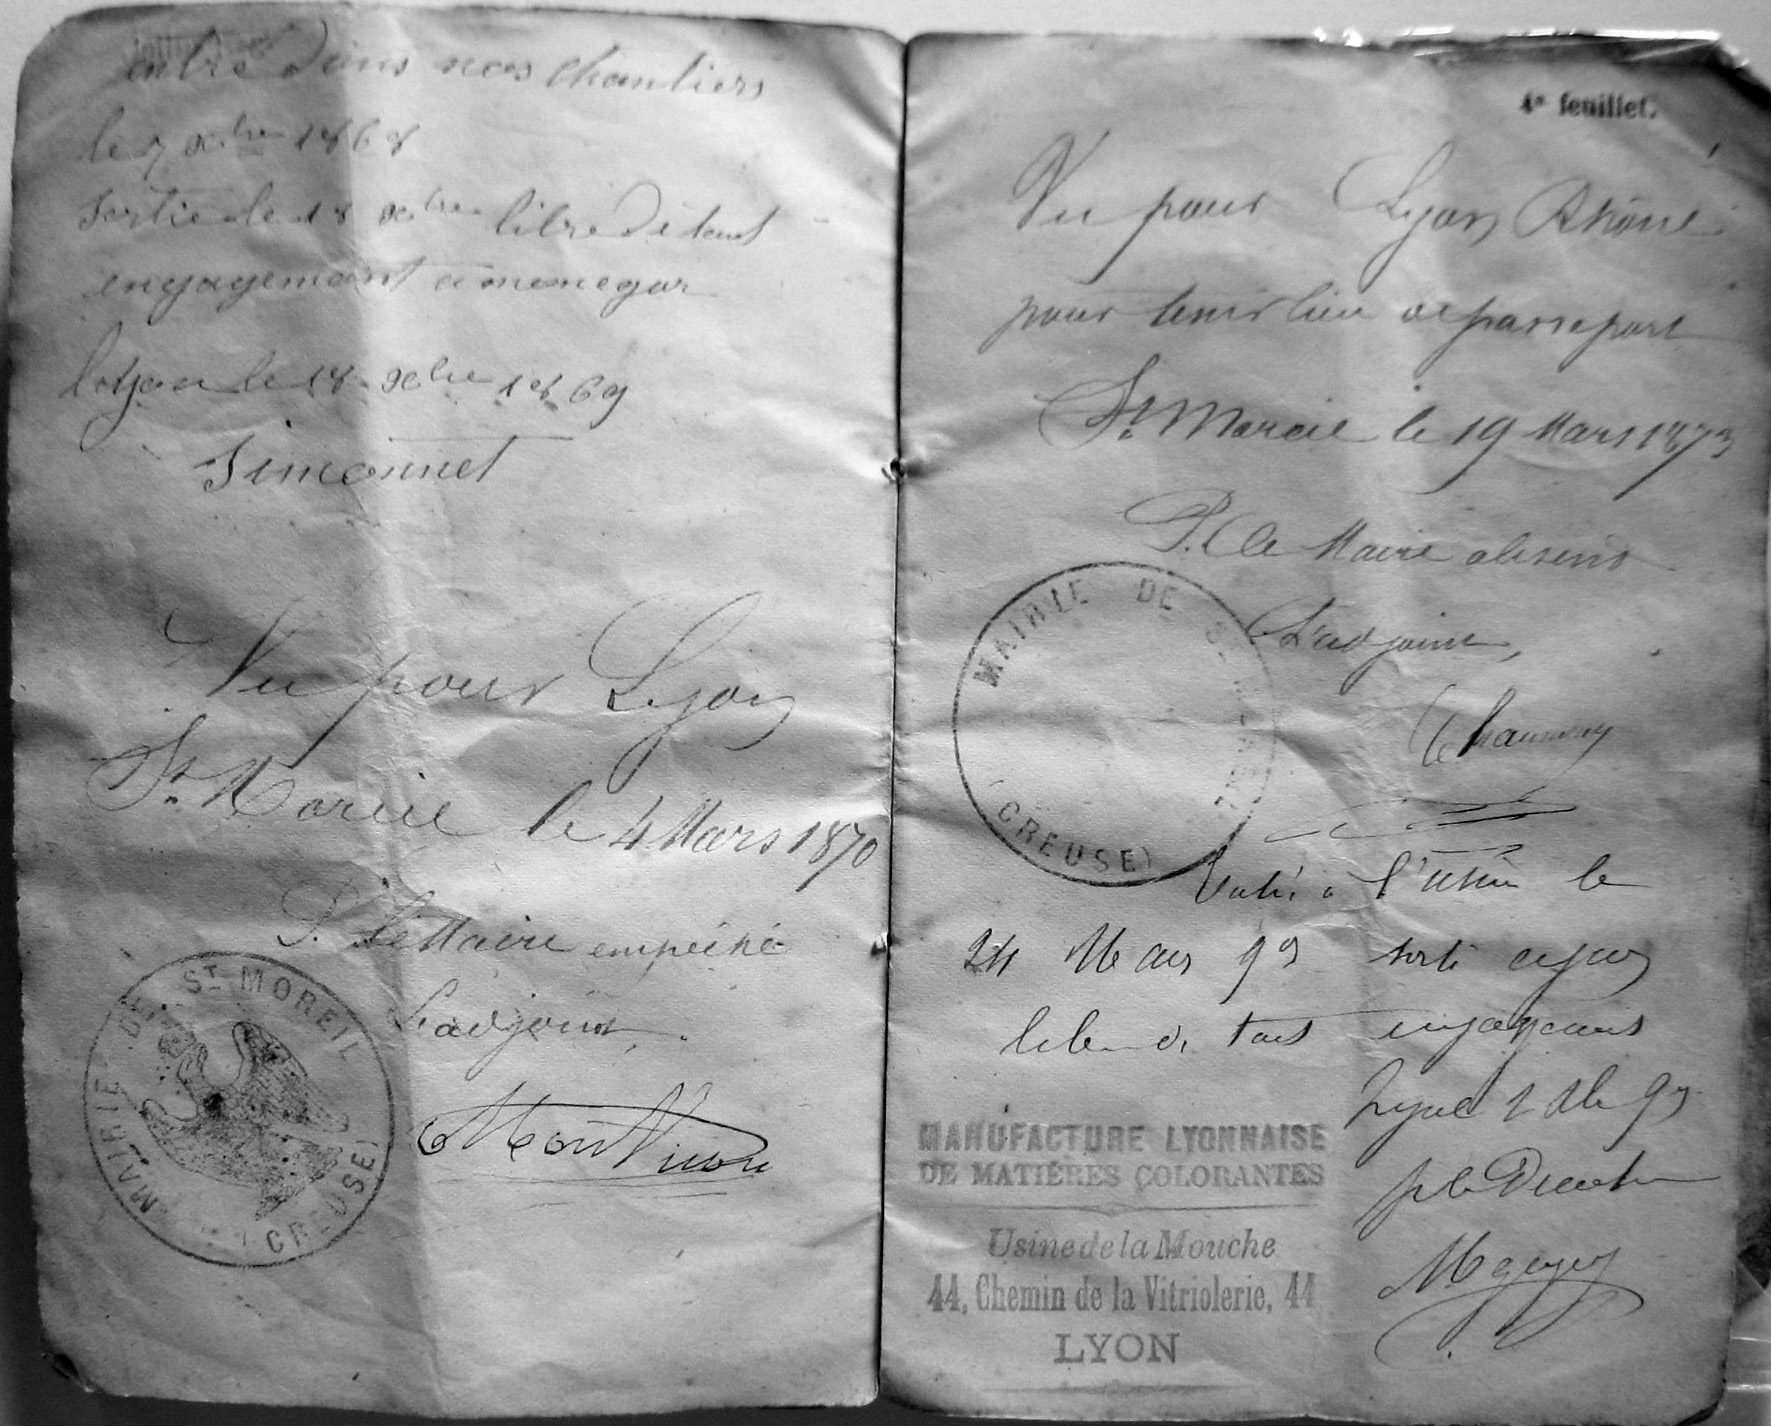 entré dans nos chantiers
le 7 xbre 1868
sortie le 18 xbre libre de tout
engagement
le 18 xbre 1869
Simonnet
Vu pour Lyon
St Moreil le 4 Mars 1870
P. le Maire empêché
L'adjoint,
MAIRIE DE ST MOREIL
(CREUSE)
4e feuillet.
Vu pour Lyon Rhône
pour tenir lieu de passeport
St Moreil le 19 Mars 1873
P. le Maire absent
L'adjoint,
MAIRIE DE
(CREUSE)
Entré à l'usine le
24 Mars sorti ce jour
libre de tout engagement
MANUFACTURE LYONNAISE
DE MATIÈRES COLORANTES
Usine de la Mouche
44, Chemin de la Vitriolerie, 44
LYON